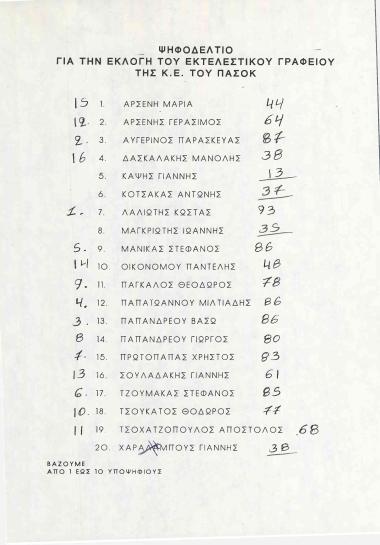 ΨΗΦΟΔΕΛΤΙΟ
ΓΙΑ ΤΗΝ ΕΚΛΟΓΗ ΤΟΥ ΕΚΤΕΛΕΣΤΙΚΟΥ ΓΡΑΦΕΙΟΥ
ΤΗΣ Κ.Ε. ΤΟΥ ΠΑΣΟΚ
15 1. ΑΡΣΕΝΗ ΜΑΡΙΑ 44
12. 2. ΑΡΣΕΝΗΣ ΓΕΡΑΣΙΜΟΣ 64
2. 3. ΑΥΓΕΡΙΝΟΣ ΠΑΡΑΣΚΕΥΑΣ 87
16 4. ΔΑΣΚΑΛΑΚΗΣ ΜΑΝΟΛΗΣ 38
5. ΚΑΨΗΣ ΓΙΑΝΝΗΣ 13
6. ΚΟΤΣΑΚΑΣ ΑΝΤΩΝΗΣ 37
1. 7. ΛΑΛΙΩΤΗΣ ΚΩΣΤΑΣ 93
8. ΜΑΓΚΡΙΩΤΗΣ ΙΩΑΝΝΗΣ 35
5. 9. ΜΑΝΙΚΑΣ ΣΤΕΦΑΝΟΣ 86
14 10. ΟΙΚΟΝΟΜΟΥ ΠΑΝΤΕΛΗΣ 48
9. 11. ΠΑΓΚΑΛΟΣ ΘΕΟΔΩΡΟΣ 78
4. 12. ΠΑΠΑΪΩΑΝΝΟΥ ΜΙΛΤΙΑΔΗΣ 86
3. 13. ΠΑΠΑΝΔΡΕΟΥ ΒΑΣΩ 86
8 14. ΠΑΠΑΝΔΡΕΟΥ ΓΙΩΡΓΟΣ 80
7. 15. ΠΡΩΤΟΠΑΠΑΣ ΧΡΗΣΤΟΣ 83
13 16. ΣΟΥΛΑΔΑΚΗΣ ΓΙΑΝΝΗΣ 61
6. 17. ΤΖΟΥΜΑΚΑΣ ΣΤΕΦΑΝΟΣ 85
10. 18. ΤΣΟΥΚΑΤΟΣ ΘΟΔΩΡΟΣ 77
11 19. ΤΣΟΧΑΤΖΟΠΟΥΛΟΣ ΑΠΟΣΤΟΛΟΣ 68
20. ΧΑΡΑΛΑΜΠΟΥΣ ΓΙΑΝΝΗΣ 38
ΒΑΖΟΥΜΕ
ΑΠΟ 1 ΕΩΣ 10 ΥΠΟΨΗΦΙΟΥΣ